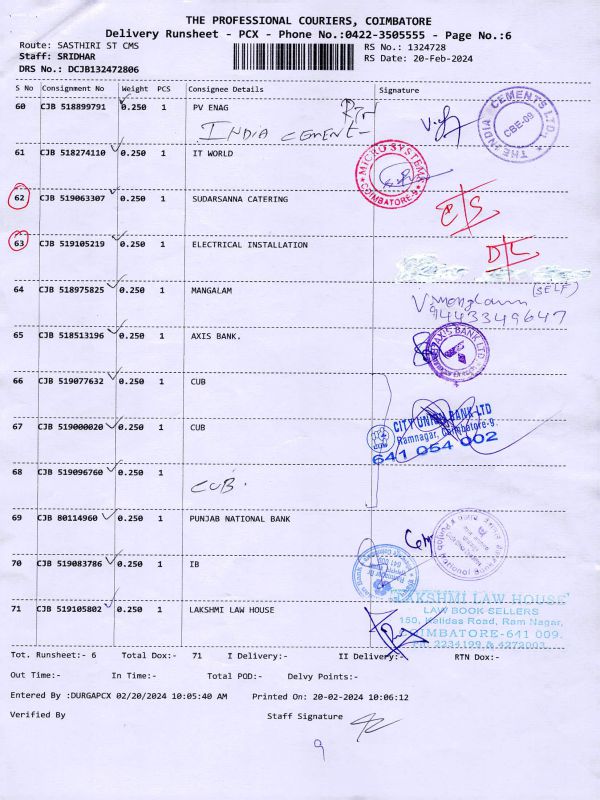 THE PROFESSIONAL COURIERS, COIMBATORE
Delivery Runsheet - PCX - Phone No.:0422-3505555 - Page No.:6
Route: SASTHIRI ST CMS RS No.: 1324728
Staff: SRIDHAR RS Date: 20-Feb-2024
DRS No.: DCJB132472806
S No Consignment No Weight PCS Consignee Details Signature
60 CJB 518899791 0.250 1 PV ENAG
INDIA CEMENT
THE INDIA CEMENTS LTD. CBE-09
61 CJB 518274110 0.250 1 IT WORLD
MICRO SYSTEMS COIMBATORE-9
62 CJB 519063307 0.250 1 SUDARSANNA CATERING
63 CJB 519105219 0.250 1 ELECTRICAL INSTALLATION
D/L
64 CJB 518975825 0.250 1 MANGALAM
(SELF)
V. Mangalam
9443349647
65 CJB 518513196 0.250 1 AXIS BANK.
AXIS BANK LTD
66 CJB 519077632 0.250 1 CUB
67 CJB 519000020 0.250 1 CUB
CITY UNION BANK LTD
Ramnagar, Coimbatore-9.
641 054 002
68 CJB 519096760 0.250 1
CUB.
69 CJB 80114960 0.250 1 PUNJAB NATIONAL BANK
70 CJB 519083786 0.250 1 IB
71 CJB 519105802 0.250 1 LAKSHMI LAW HOUSE
LAKSHMI LAW HOUSE
LAW BOOK SELLERS
150, Kalidas Road, Ram Nagar,
COIMBATORE-641 009.
2234199 & 4272003
Tot. Runsheet:- 6 Total Dox:- 71 I Delivery:- II Delivery:- RTN Dox:-
Out Time:- In Time:- Total POD:- Delvy Points:-
Entered By :DURGAPCX 02/20/2024 10:05:40 AM Printed On: 20-02-2024 10:06:12
Verified By Staff Signature
9